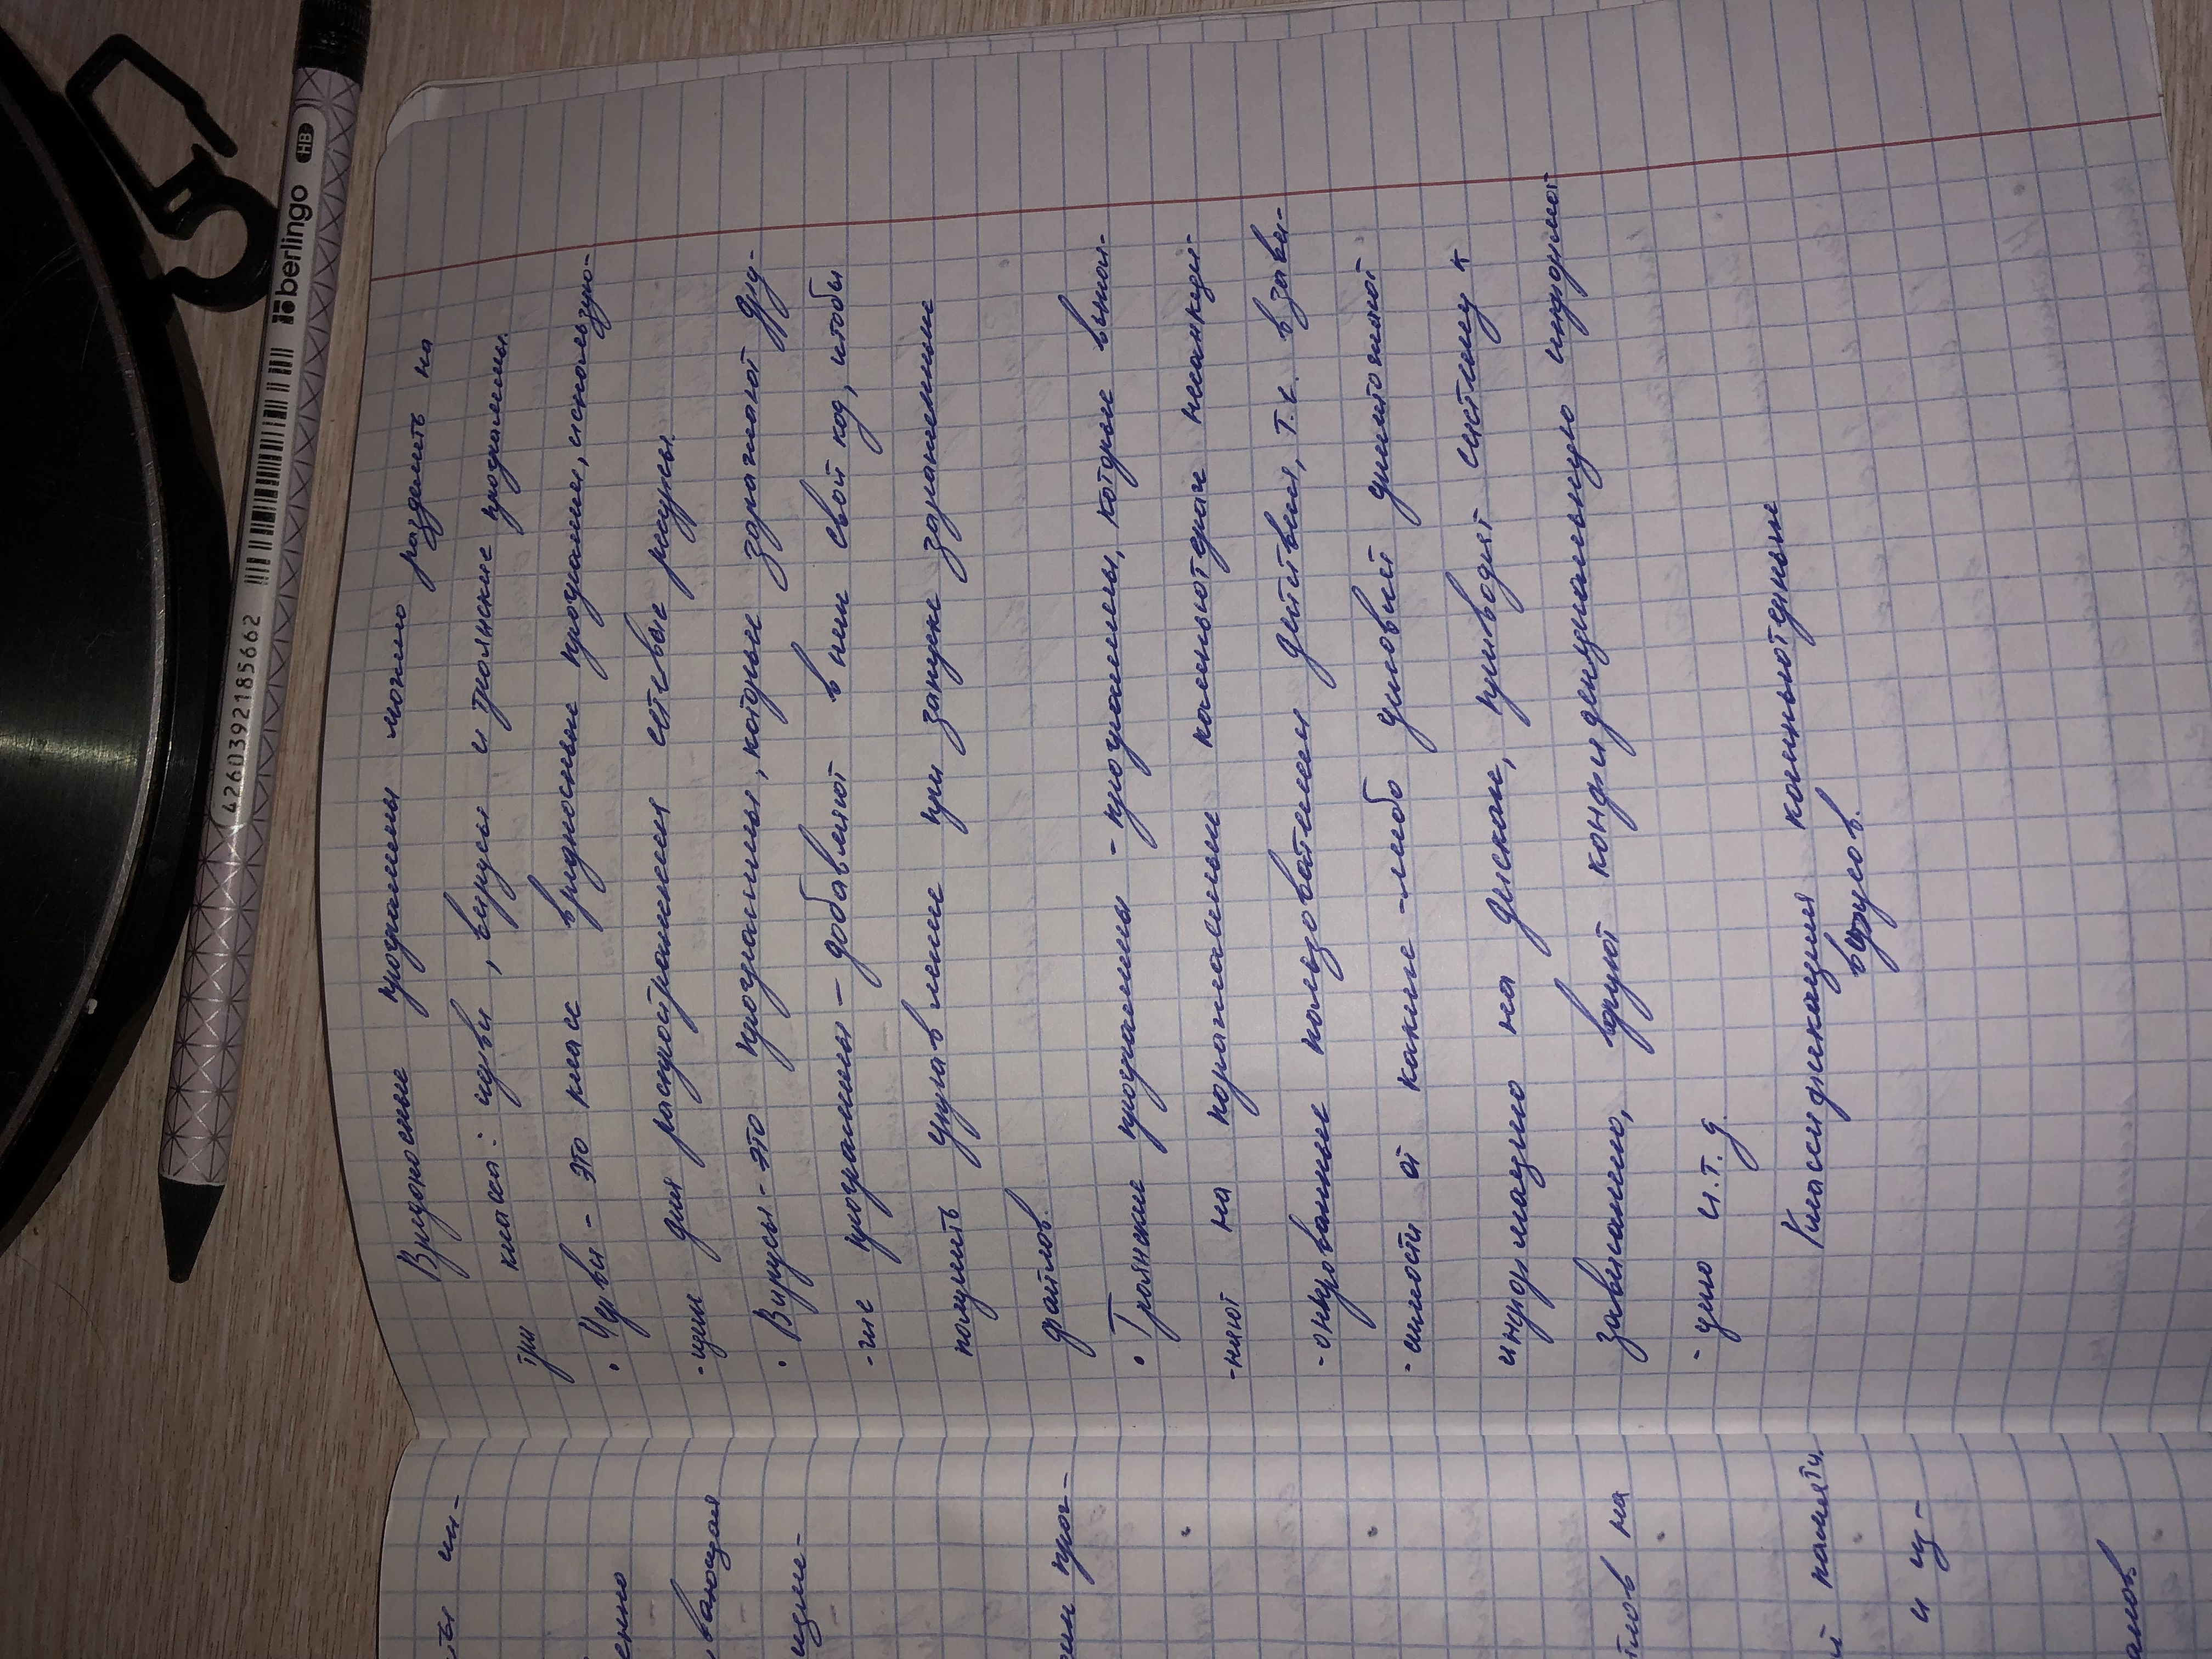 Вредоносные программы можно разделить на
три класса: черви, вирусы и троянские программы.
• Черви - это класс вредоносных программ, использую-
-щих для распространения сетевые ресурсы.
• Вирусы - это программы, которые заражают дру-
-гие программы – добавляют в них свой код, чтобы
получить управление при запуске зараженных
файлов.
• Троянские программы - программы, которые выпол-
-няют на поражаемых компьютерах несанкци-
-онированные пользователем действия, т.е. в зави-
-симости от каких-либо условий уничтожают
информацию на дисках, приводят систему к
зависанию, воруют конфиденциальную информат
-цию и.т.д.
Классификация компьютерных
вирусов.
ты ин-
енно
вающая
изме-
ами прог-
йлов на
й памяти.
и из-
амов
berlingo HB
4260392185662